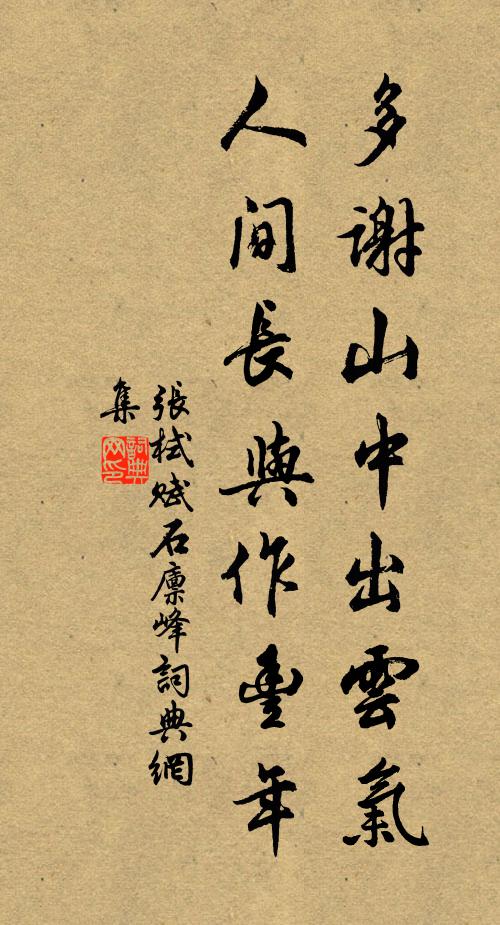 多謝山中出雲氣
人間長與作豐年
張栻賦石廪峰詞典網
集
詞典网印